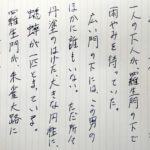 一人の下人が、羅生門の下で
雨やみを待っていた。
広い門の下には、この男の
ほかに誰もいない。ただ所々
丹塗のはげた、大きな円柱に、
蟋蟀が一匹とまっている。
羅生門が、朱雀大路に